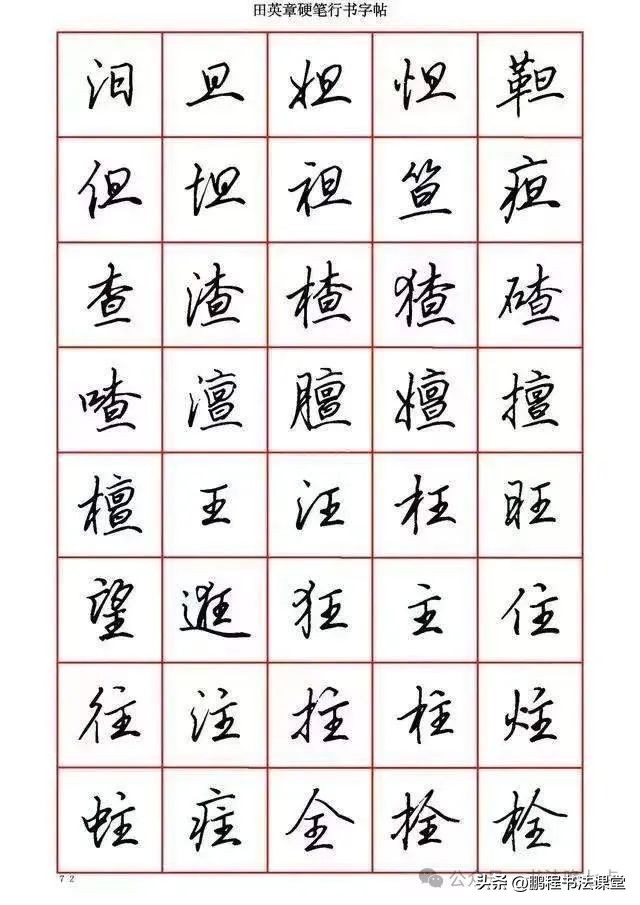 田英章硬笔行书字帖
汨旦妲怛靼
但坦袒笪疸
查渣楂猹碴
喳澶膻嬗擅
檀王汪枉旺
望逛狂主住
往注拄柱炷
蛀疰全拴栓
72
公众号
头条@鹏程书法课堂